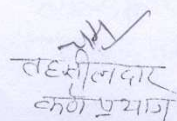 तहसीलदार
कर्ण प्रयाग